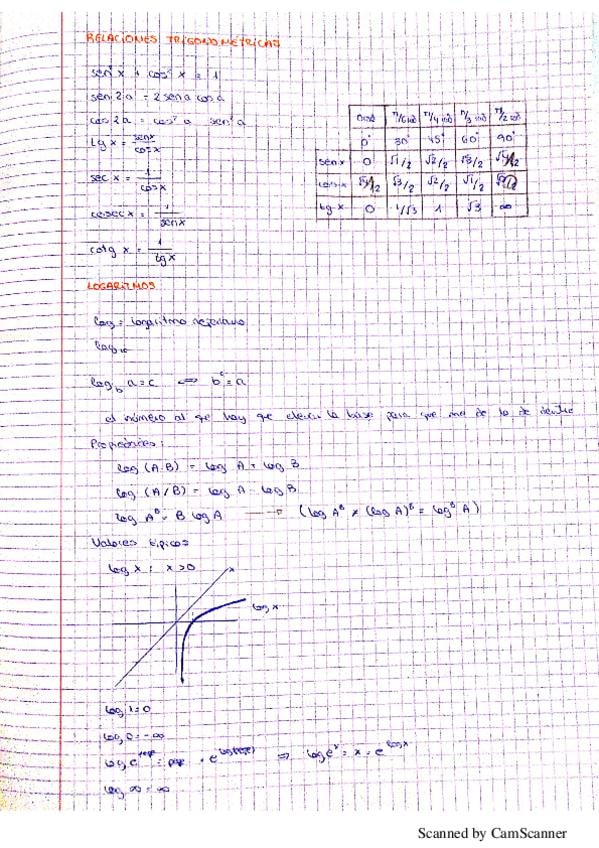 RELACIONES TRIGONOMÉTRICAS
sen²x + cos²x = 1
sen 2a = 2 sen a cos a
cos 2a = cos²a sen²a
tg x = sen x / cos x
sec x = 1 / cos x
cosec x = 1 / sen x
cotg x = 1 / tg x
0 rad π/6 rad π/4 rad π/3 rad π/2 rad
0° 30° 45° 60° 90°
sen x 0 √1/2 √2/2 √3/2 √4/2
cos x √4/2 √3/2 √2/2 √1/2
tg x 0 1/√3 1 √3 ∞
LOGARITMOS
log = logaritmo neperiano
log₁₀
log_b a = c ⟺ b^c = a
el número al que hay que elevar la base para que me de lo de dentro
Propiedades:
log (A·B) = log A + log B
log (A/B) = log A - log B
log A^B = B log A → (log A^B ≠ (log A)^B = log^B A)
Valores típicos
log x : x > 0
x
log x
log 1 = 0
log 0 = -∞
log e^pepe = pepe = e^log(pepe) ⟹ log e^x = x = e^log x
log ∞ = ∞
Scanned by CamScanner